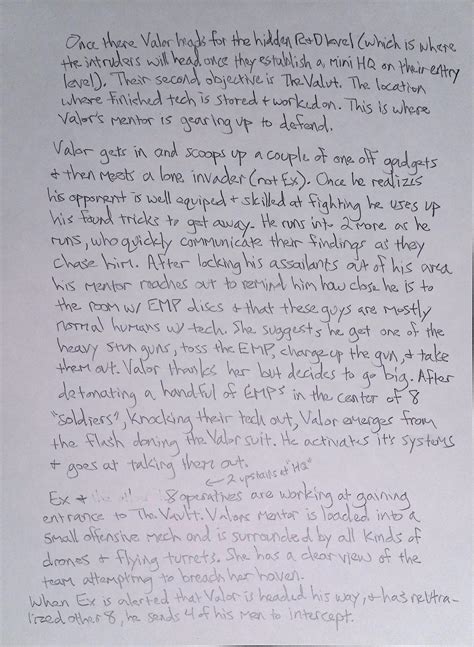 Once there Valor heads for the hidden R+D level (which is where
the intruders will head once they establish a mini HQ on their entry
level). Their second objective is The Valut. The location
where finished tech is stored + worked on. This is where
Valor's mentor is gearing up to defend.
Valor gets in and scoops up a couple of one off gadgets
+ then meets a lone invader (not Ex). Once he realizes
his opponent is well equiped + skilled at fighting he uses up
his found tricks to get away. He runs into 2 more as he
runs, who quickly communicate their findings as they
chase him. After locking his assailants out of his area
his mentor reaches out to remind him how close he is to
the room w/ EMP discs + that these guys are mostly
normal humans w/ tech. She suggests he get one of the
heavy stun guns, toss the EMP, charge up the gun, + take
them out. Valor thanks her but decides to go big. After
detonating a handful of EMPs in the center of 8
"soldiers", knocking their tech out, Valor emerges from
the flash doning the Valor suit. He activates it's systems
+ goes at taking them out.
2 upstairs at "HQ"
Ex + 8 operatives are working at gaining
entrance to The Vault. Valors Mentor is loaded into a
small offensive mech and is surrounded by all kinds of
drones + flying turrets. She has a clear view of the
team attempting to breach her haven.
When Ex is alerted that Valor is headed his way, + has neutra-
lized other 8, he sends 4 of his men to intercept.